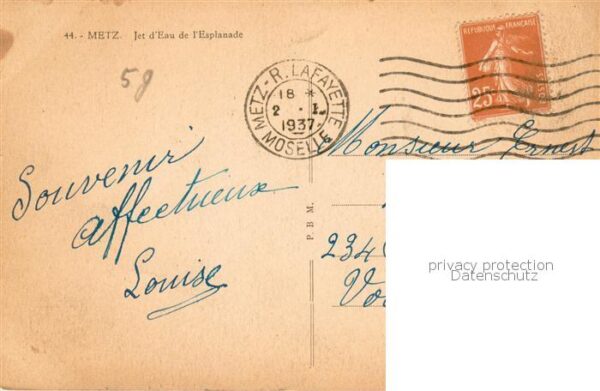 44. - METZ. Jet d'Eau de l'Esplanade
58
METZ - R. LAFAYETTE
18 *
2 - 1
1937
MOSELLE
REPUBLIQUE FRANÇAISE
POSTES
25c
Souvenir
affectueux
Louise
P. B. M.
Monsieur Ernest
234
privacy protection
Datenschutz